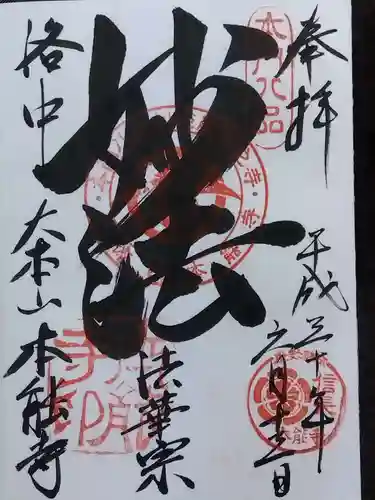 奉拝
平成三十年
六月十五日
妙法
法華宗
洛中
大本山 本能寺
本能寺